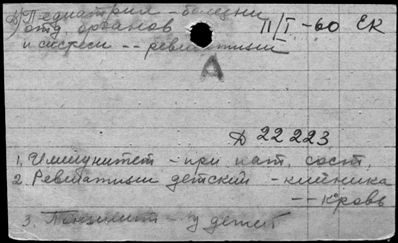 в) Педиатрия - болезни
отд органов
и систем -- ревматизм
II/I - 60 ЕК
А
Д 22 223
1, Иммунитет - при пат, сост,
2. Ревматизм детский - клиника
-- кровь
3 Тонзиллит - у детей